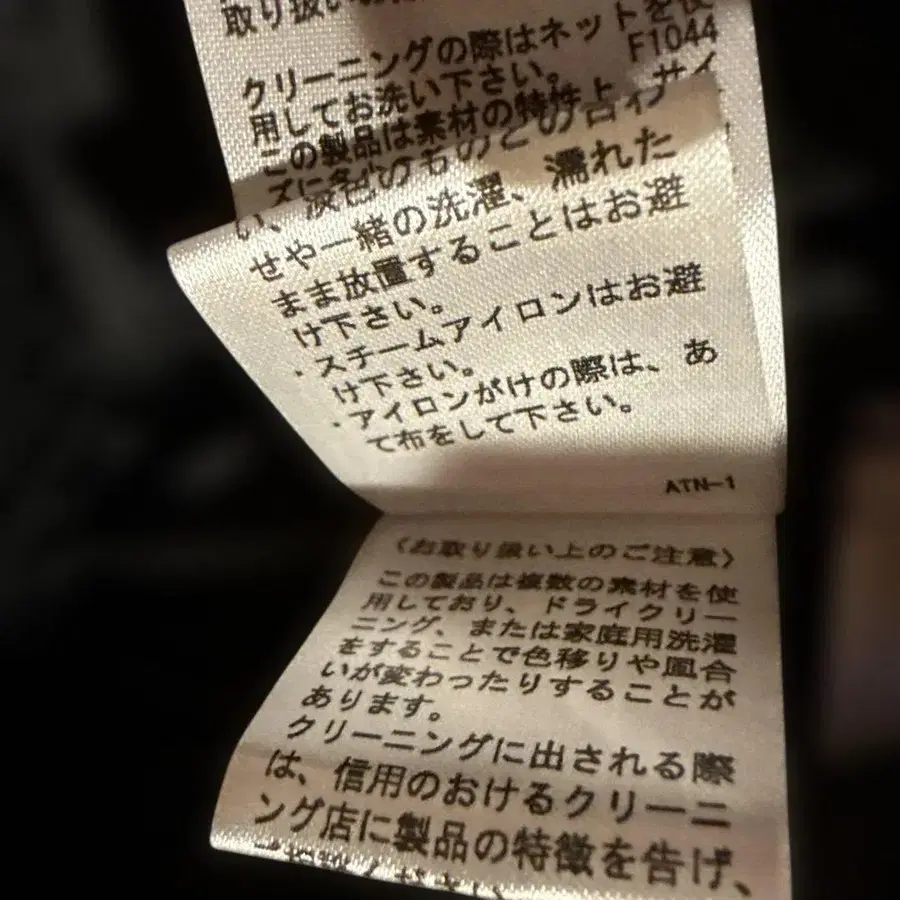 取り扱い
クリーニングの際はネットを使
用してお洗い下さい。 F1044
この製品は素材の特性上、サイ
ズに多
い、淡色のものとの合わ
せや一緒の洗濯、濡れた
まま放置することはお避
け下さい。
・スチームアイロンはお避
け下さい。
・アイロンがけの際は、あ
て布をして下さい。
ATN-1
〈お取り扱い上のご注意〉
この製品は複数の素材を使
用しており、ドライクリー
ニング、または家庭用洗濯
をすることで色移りや風合
いが変わったりすることが
あります。
クリーニングに出される際
は、信用のおけるクリーニ
ング店に製品の特徴を告げ、